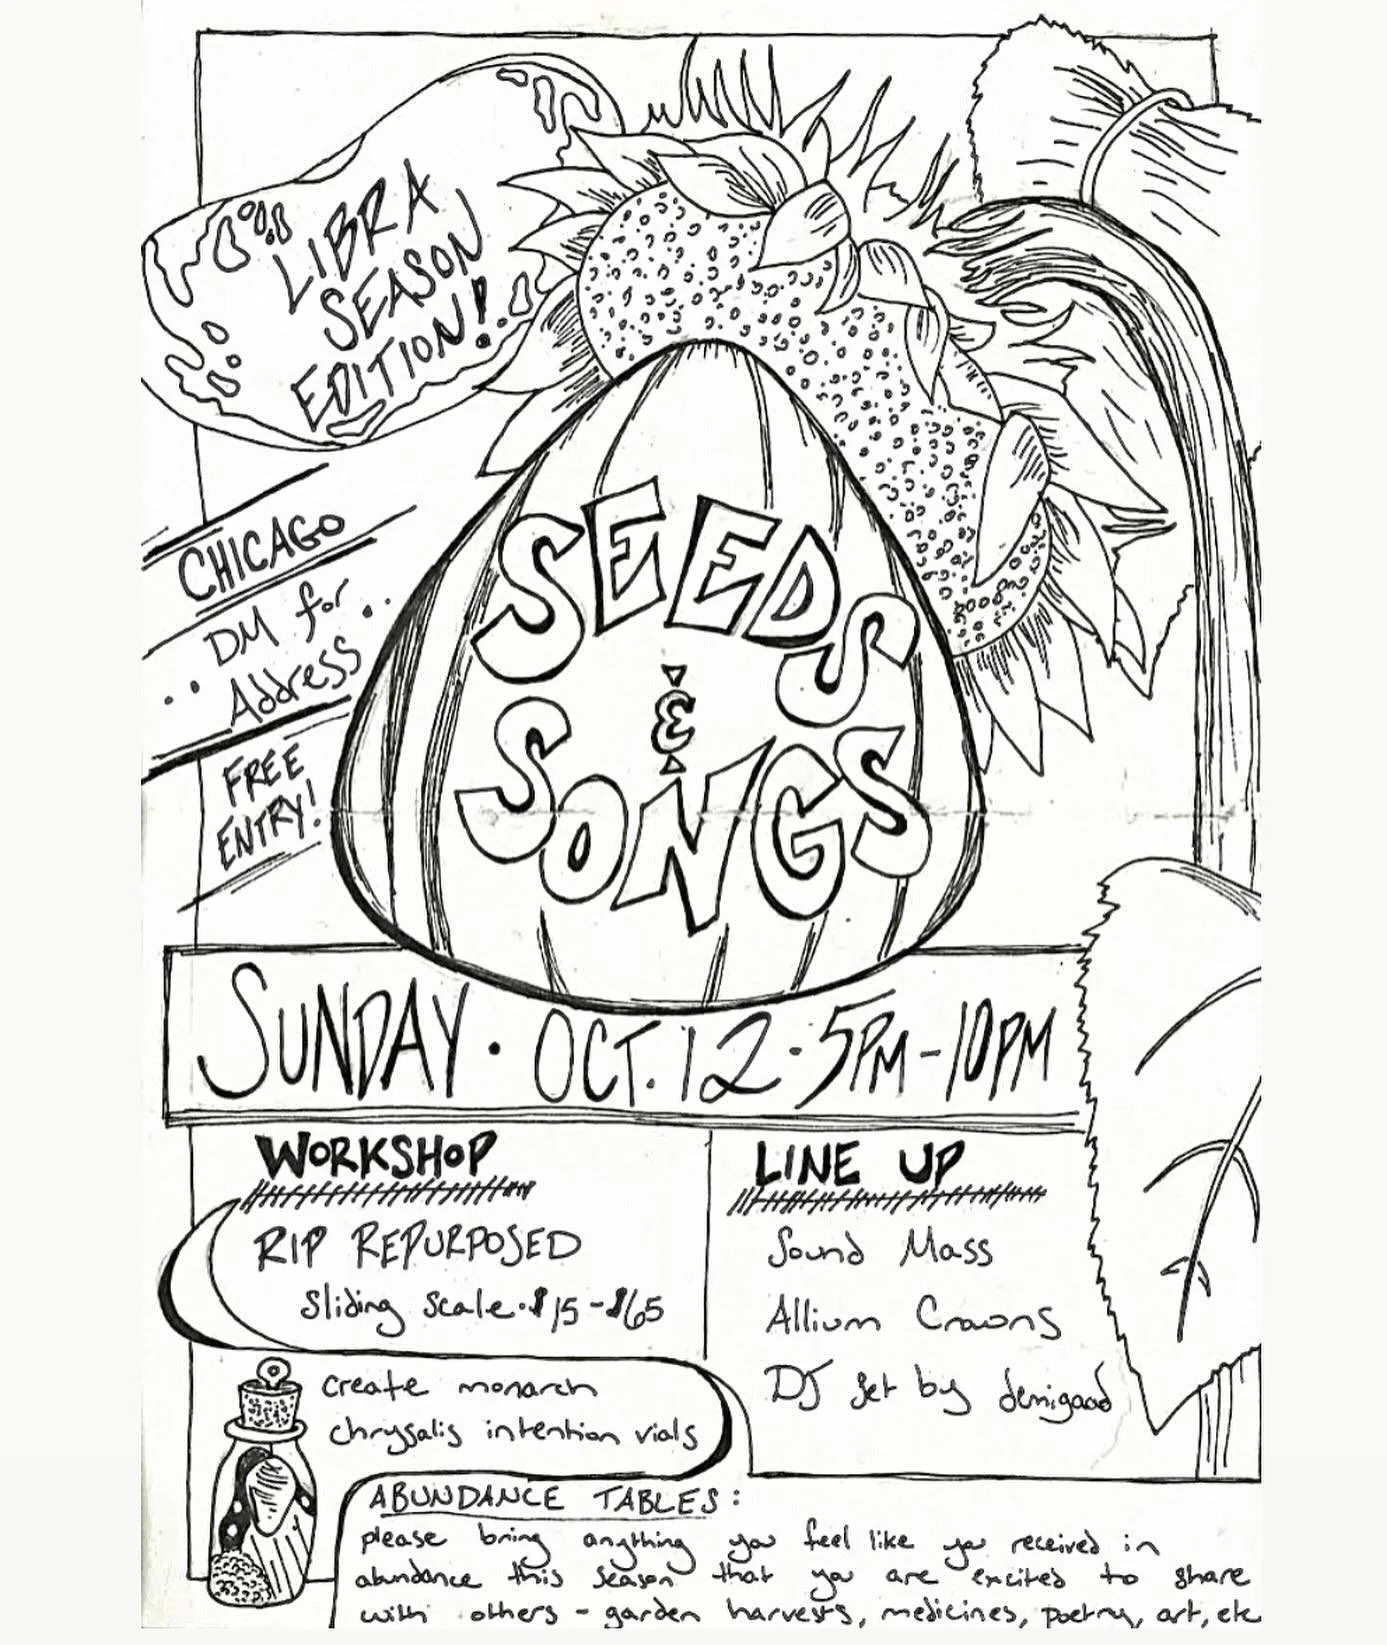 LIBRA
SEASON
EDITION!
CHICAGO
DM for
Address
FREE
ENTRY!
SEEDS
&
SONGS
SUNDAY · OCT. 12 · 5PM – 10PM
WORKSHOP
RIP REPURPOSED
sliding scale · $15 – $65
create monarch
chrysalis intention vials
LINE UP
Sound Mass
Allium Crowns
DJ set by demigaad
ABUNDANCE TABLES:
please bring anything you feel like you received in
abundance this season that you are excited to share
with others – garden harvests, medicines, poetry, art, etc